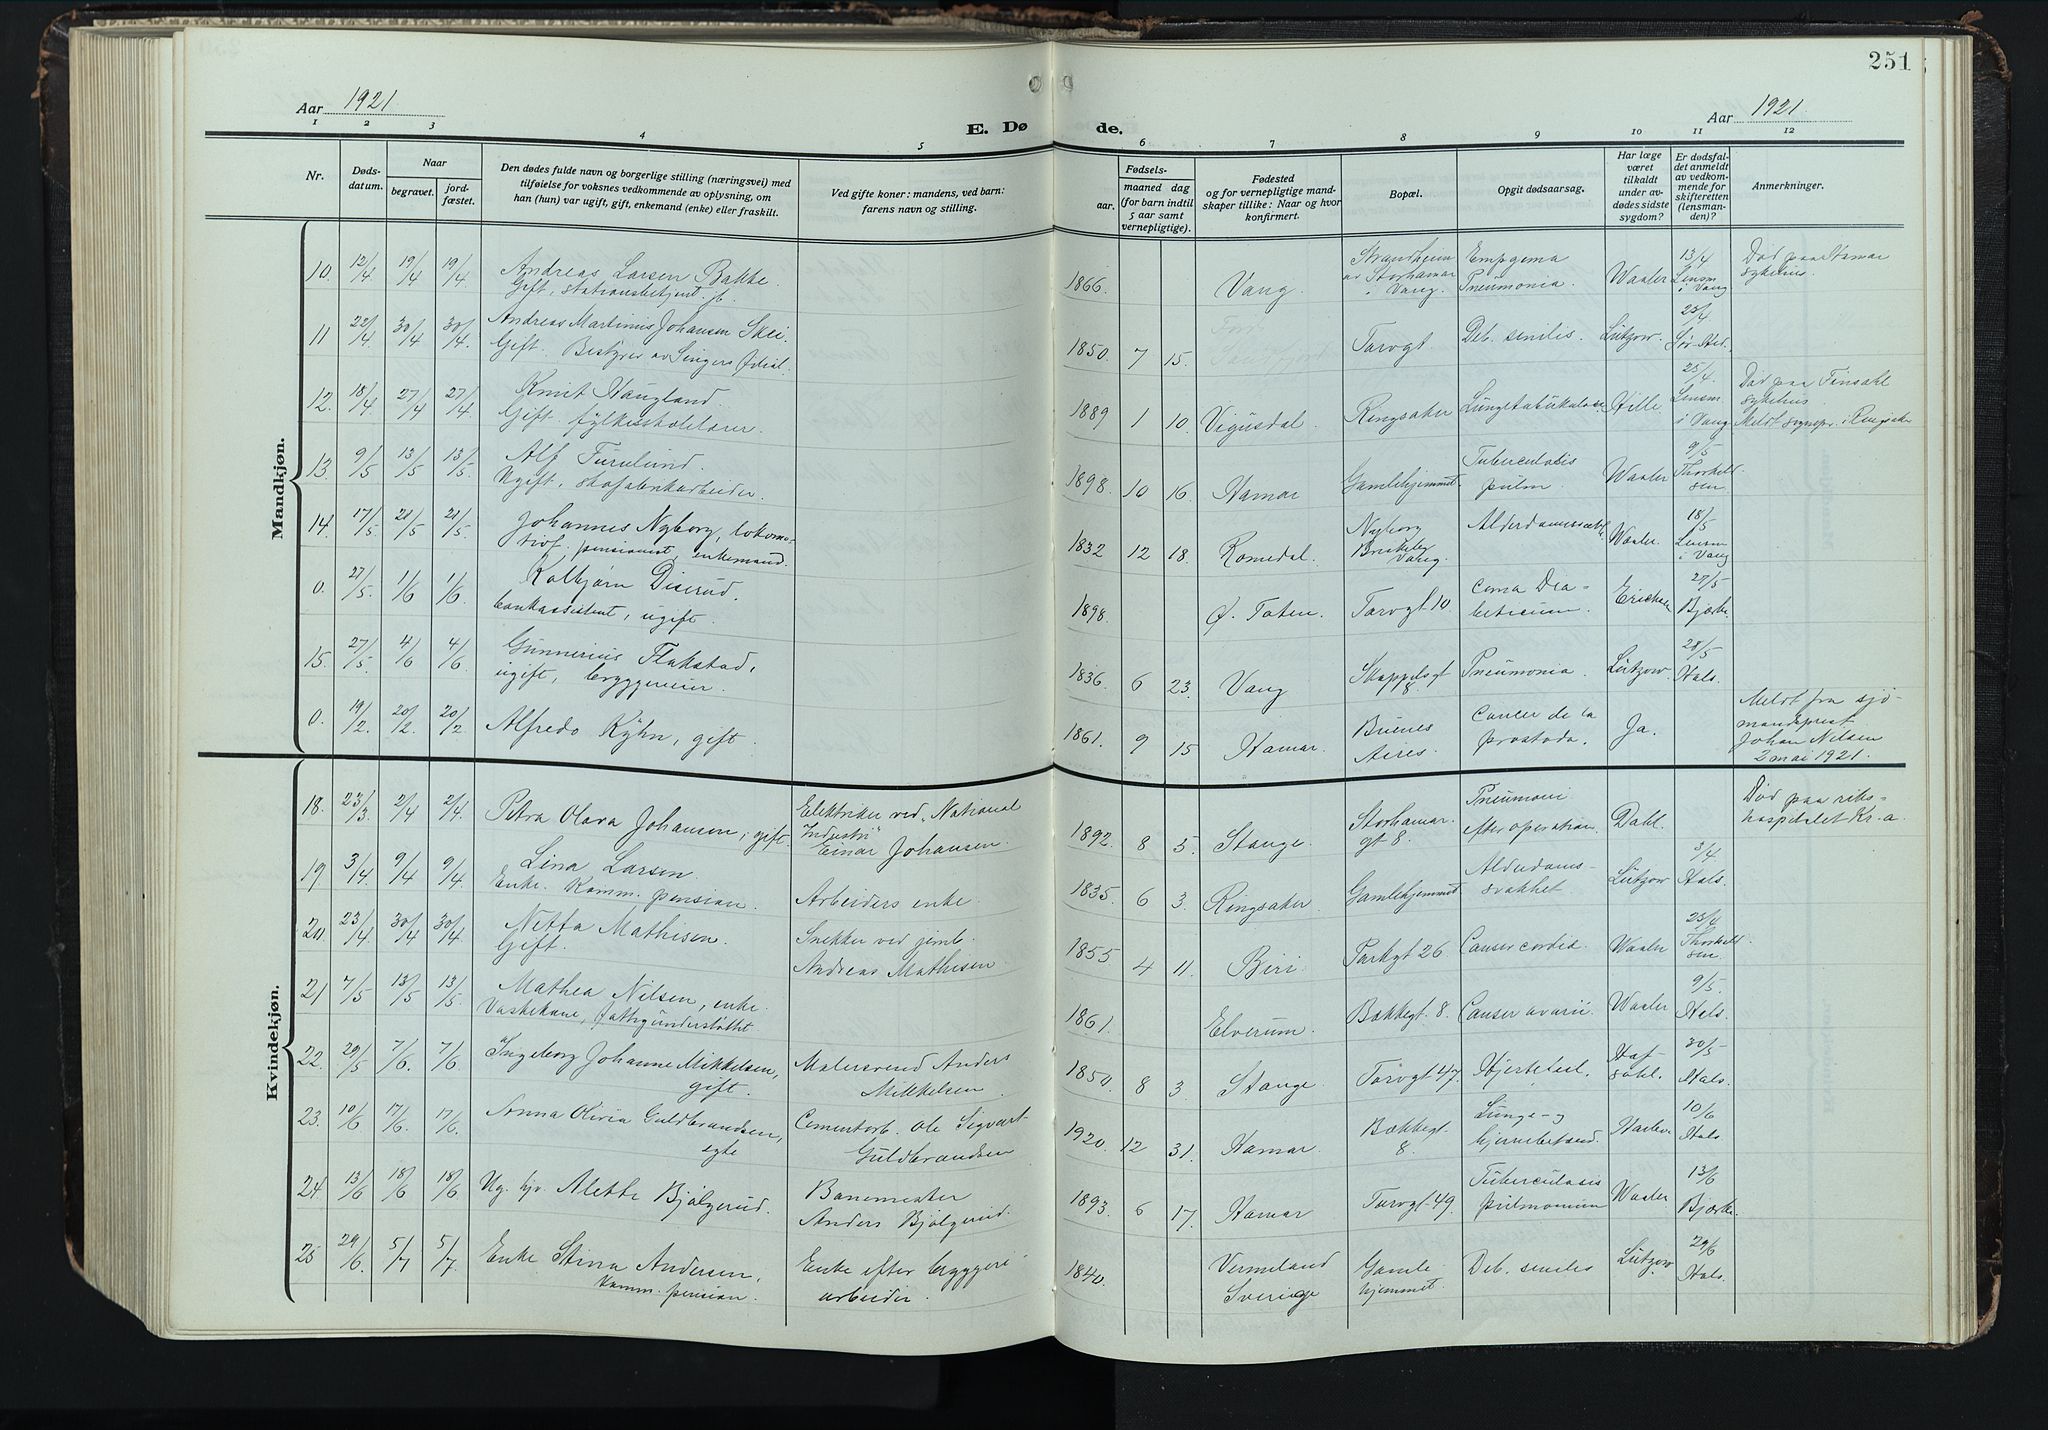 251
Aar 1921
E. Dø
de.
Aar 1921.
1 2 3 4 5 6 7 8 9 10 11 12
Nr.
Døds-
datum.
Naar
begravet.
jord-
fæstet.
Den dødes fulde navn og borgerlige stilling (næringsvei) med
tilføielse for voksnes vedkommende av oplysning, om
han (hun) var ugift, gift, enkemand (enke) eller fraskilt.
Ved gifte koner: mandens, ved barn:
farens navn og stilling.
Fødsels-
aar.
maaned dag
(for barn indtil
5 aar samt
vernepligtige).
Fødested
og for vernepligtige mand-
skaper tillike: Naar og hvor
konfirmert.
Bopæl.
Opgit dødsaarsag.
Har læge
været
tilkaldt
under av-
dødes sidste
sygdom?
Er dødsfal-
det anmeldt
av vedkom-
mende for
skifteretten
(lensman-
den)?
Anmerkninger.
Mandkjøn.
10. 12/4 19/4 19/4 Andreas Larsen Bakke.
Gift, stationsbetjent.
1866. Vang. Strandheim
av Storhamar
i Vang. Empyema
Pneumonia. Waaler 13/4
Lensm
i Vang Død paa Hamar
sykehus.
11 22/4 30/4 30/4 Andreas Martinius Johansen Skei.
Gift. Bestyrer av Singers
1850. 7 15. Torvgt Deb. senilis. Lützow. 23/4
12. 18/4 27/4 27/4 Knut Haugland.
Gift. fylkesskolelærer.
1889 1 10. Vigusdal. Ringsaker Lungetuberkulose Hille 25/4.
Lensm
i Vang Død paa Finsahl
sykehus.
Meldt sognepr. i Ringsaker
13. 9/5 13/5 13/5 Alf Furulund.
Ugift, skofabrikarbeider.
1898. 10 16. Hamar Gamlehjemmet. Tuberculosis
pulm Waaler 9/5
Thorkild-
sen
14. 17/5 21/5 21/5 Johannes Nyborg, lokomo-
tivf. pensionist, enkemand.
1832 12 18. Romedal. Nyborg
Briskeby
Vang. Alderdomssvakh. Waaler. 18/5
Lensm
i Vang
0. 27/5. 1/6 1/6 Kolbjørn Diserud.
bankassistent, ugift.
1898. Ø. Toten. Torvgt 10. Coma Dia-
beticum. Erichsen 27/5
Bjørke
15. 27/5 4/6 4/6 Gunnerius Flakstad,
ugift, bryggereier.
1836. 6 23. Vang Skappelsgt
8. Pneumonia. Lützow. 28/5
Hals.
0. 19/2. 20/2. 20/2 Alfredo Kÿhn, gift.
1861. 9 15 Hamar. Buenos
Aires. Cancer de la
prostada. Ja. Meldt fra sjø-
mandsprest
Johan Nilsen
2 mai 1921.
Kvindekjøn.
18. 23/3 2/4 2/4. Petra Olava Johansen, gift. Elektriker ved "National
Industri"
Einar Johansen.
1892. 8 5. Stange. Storhamar.
gt 8. Pneumoni
efter operation Dahl. Død paa riks-
hospitalet Kr.a.
19 3/4 9/4 9/4 Lina Larsen.
Enke. Komm. pension. Arbeiders enke.
1835 6 3. Ringsaker Gamlehjemmet Alderdoms-
svakhet Lützow 3/4
Hals.
20. 23/4 30/4 30/4 Netta Mathisen.
Gift. Snekker ved jernb.
Andreas Mathisen
1855 4 11. Biri. Parkgt 26. Cancer cordia. Waaler 25/4
Thorkild-
sen.
21 7/5 13/5 13/5. Mathea Nilsen, enke.
Vaskekone, fattigunderstøttet
1861. Elverum. Bækkegt. 8. Cancer ovarii. Waaler 9/5.
Hals.
22. 29/5 7/6. 7/6. Ingeborg Johanne Mikkelsen,
gift. Malersvend Anders
Mikkelsen.
1850. 8 3. Stange. Torvgt 47. Hjertefeil. Haf-
søhl. 30/5
Hals.
23. 10/6. 17/6. 17/6. Anna Olivia Guldbrandsen,
egte Cementarb. Ole Sigvart
Guldbrandsen
1920. 12 31. Hamar. Bækkegt.
8. Lunge- og
hjernebetænd. 10/6
Hals.
24. 13/6 18/6 18/6 Ug. hjv. Alette Bjølgerud. Banemester
Anders Bjølgerud.
1893. 6 17. Hamar Torvgt 49. Tuberculosis
pulmonium Waaler. 13/6
Bjørke.
25. 29/6. 5/7 5/7. Enke Stina Andersen,
Komm. pension. Enke efter bryggeri
arbeider.
1840. Vermeland
Sverige Gamle
hjemmet. Deb. senilis Lützow 29/6
Hals.